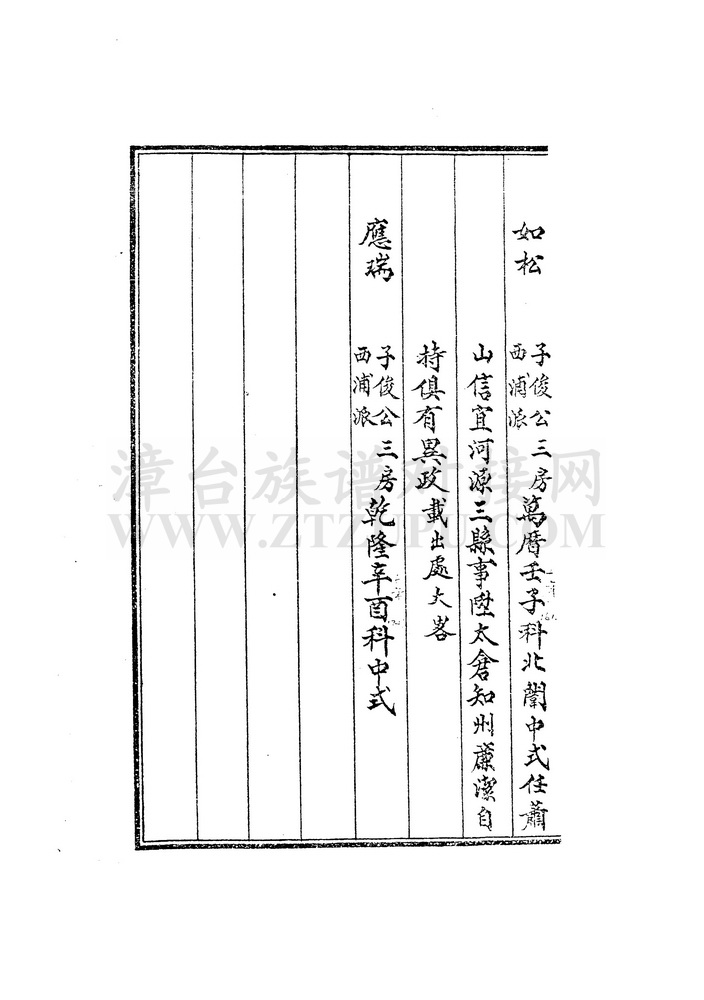 如松 子俊公西浦派 三房 萬曆壬子科北闈中式任蕭
山信宜河源三縣事陞太倉知州廉潔自
持俱有異政載出處大畧
應瑞 子俊公西浦派 三房 乾隆辛酉科中式
漳台族谱对接网
WWW.ZTZUPU.COM